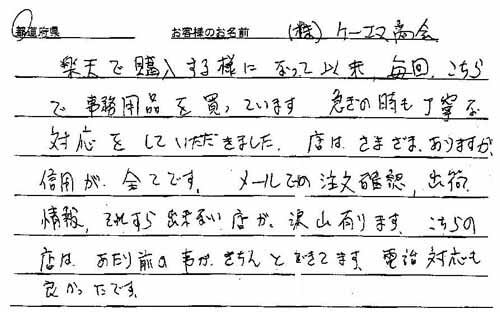 都道府県 お客様のお名前 (株)ケーエス商会
楽天で購入する様になって以来、毎回、こちら
で事務用品を買っています 急ぎの時も丁寧な
対応をしていただきました。店はさまざまありますが、
信用が全てです。メールでの注文確認、出荷
情報、それすら出来ない店が、沢山有ります。こちらの
店は、あたり前の事が、きちんとできてます。電話対応も
良かったです。